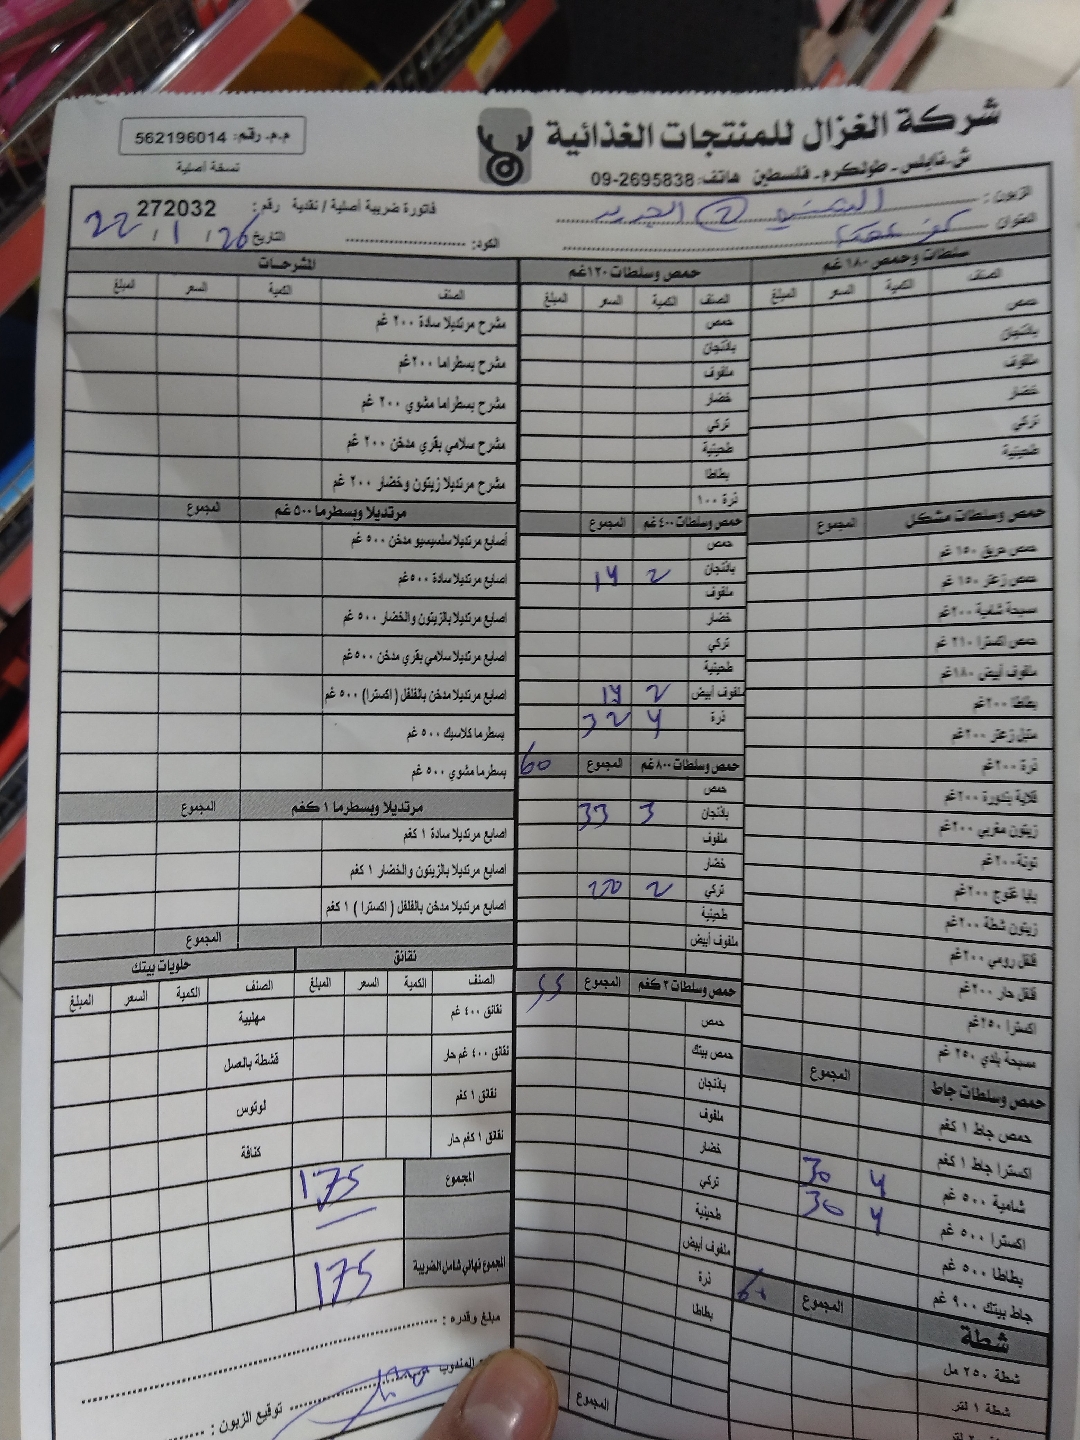 شركة الغزال للمنتجات الغذائية
ش.نابلس - طولكرم - فلسطين هاتف: 09-2695838
م.م. رقم: 562196014
نسخة أصلية
الزبون :
العنوان
فاتورة ضريبية أصلية / نقدية رقم: 272032
الكود:
التاريخ 22 / 1 / 26
سلطات وحمص ١٨٠ غم
الصنف الكمية السعر المبلغ
حمص
باذنجان
ملفوف
خضار
تركي
طحينية
حمص وسلطات مشكل المجموع
حمص حريق ١٥٠ غم
حمص زعتر ١٥٠ غم
مسبحة شامية ٢٠٠غم
حمص اكسترا ٢١٠ غم
ملفوف أبيض ١٨٠غم
بطاطا ٢٠٠غم
متبل زعتر ٢٠٠غم
ذرة ٢٠٠غم
قلاية بندورة ٢٠٠غم
زيتون مغربي ٢٠٠غم
تونة٢٠٠غم
بابا غنوج ٢٠٠غم
زيتون شطة ٢٠٠غم
فلفل رومي ٢٠٠غم
فلفل حار ٢٠٠غم
اكسترا ٢٥٠غم
مسبحة بلدي ٢٥٠ غم
حمص وسلطات جاط المجموع
حمص جاط ١ كغم
اكسترا جاط ١ كغم
شامية ٥٠٠ غم 4 30
اكسترا ٥٠٠ غم 4 30
بطاطا ٥٠٠ غم
جاط بيتك ٩٠٠ غم
المجموع 60
شطة
شطة ٢٥٠ مل
شطة ١ لتر
حمص وسلطات ١٢٠غم
الصنف الكمية السعر المبلغ
حمص
باذنجان
ملفوف
خضار
تركي
طحينية
بطاطا
ذرة ١٠٠
حمص وسلطات ٤٠٠غم المجموع
حمص
باذنجان 2 14
ملفوف
خضار
تركي
طحينية
ملفوف أبيض 2 14
ذرة 4 32
حمص وسلطات ٨٠٠غم المجموع 60
حمص
باذنجان 3 33
ملفوف
خضار
تركي 2
طحينية
ملفوف أبيض
حمص وسلطات ٢ كغم المجموع 55
حمص
حمص بيتك
باذنجان
ملفوف
خضار
تركي
طحينية
ملفوف أبيض
ذرة
بطاطا
المجموع
المشرحات
الصنف الكمية السعر المبلغ
مشرح مرتديلا سادة ٢٠٠ غم
مشرح بسطراما ٢٠٠غم
مشرح بسطراما مشوي ٢٠٠ غم
مشرح سلامي بقري مدخن ٢٠٠ غم
مشرح مرتديلا زيتون وخضار ٢٠٠ غم
مرتديلا وبسطرما ٥٠٠ غم المجموع
أصابع مرتديلا سلسيسيو مدخن ٥٠٠ غم
اصابع مرتديلا سادة ٥٠٠غم
اصابع مرتديلا بالزيتون والخضار ٥٠٠ غم
اصابع مرتديلا سلامي بقري مدخن ٥٠٠غم
اصابع مرتديلا مدخن بالفلفل ( اكسترا) ٥٠٠ غم
بسطرما كلاسيك ٥٠٠ غم
بسطرما مشوي ٥٠٠ غم
مرتديلا وبسطرما ١ كغم المجموع
اصابع مرتديلا سادة ١ كغم
اصابع مرتديلا بالزيتون والخضار ١ كغم
اصابع مرتديلا مدخن بالفلفل ( اكسترا ) ١ كغم
المجموع
نقانق
الصنف الكمية السعر المبلغ
نقانق ٤٠٠ غم
نقانق ٤٠٠ غم حار
نقانق ١ كغم
نقانق ١ كغم حار
حلويات بيتك
الصنف الكمية السعر المبلغ
مهلبية
قشطة بالعسل
لوتوس
كنافة
المجموع 175
المجموع نهائي شامل الضريبة 175
مبلغ وقدره :
المندوب
توقيع الزبون :